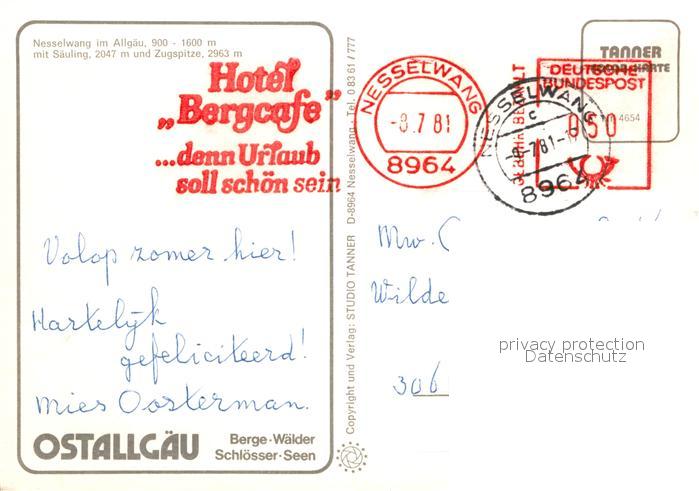 Nesselwang im Allgäu, 900 - 1600 m
mit Säuling, 2047 m und Zugspitze, 2963 m
Hotel
„Bergcafe”
...denn Urlaub
soll schön sein
Volop zomer hier!
Hartelijk
gefeliciteerd!
Mies Oosterman.
OSTALLGÄU
Berge·Wälder
Schlösser·Seen
Copyright und Verlag: STUDIO TANNER D-8964 Nesselwang · Tel. 0 83 61 / 777
NESSELWANG
-8.7 81
8964
NESSELWANG
c
8964
GEBÜHR BEZAHLT
DEUTSCHE
BUNDESPOST
050
TANNER
KARTE
4654
Mw.
Wilde
306
privacy protection
Datenschutz